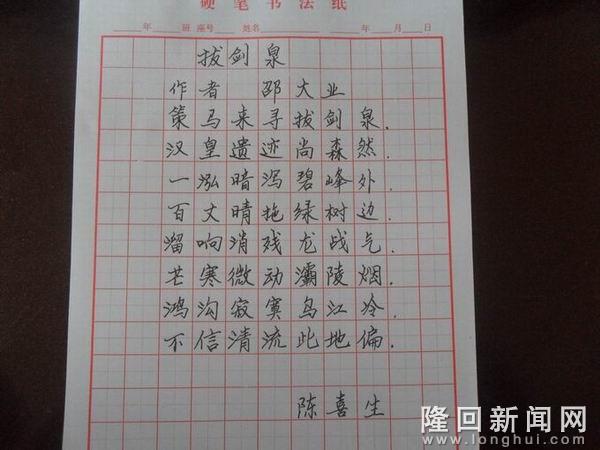 硬笔书法纸
年 班 座号 姓名 年 月 日
拔剑泉
作者 邵大业
策马来寻拔剑泉.
汉皇遗迹尚森然.
一泓暗泻碧峰外.
百丈晴拖绿树边.
溜响消残龙战气.
芒寒微动灞陵烟.
鸿沟寂寞乌江冷.
不信清流此地偏.
陈喜生
隆回新闻网
www.longhui.com